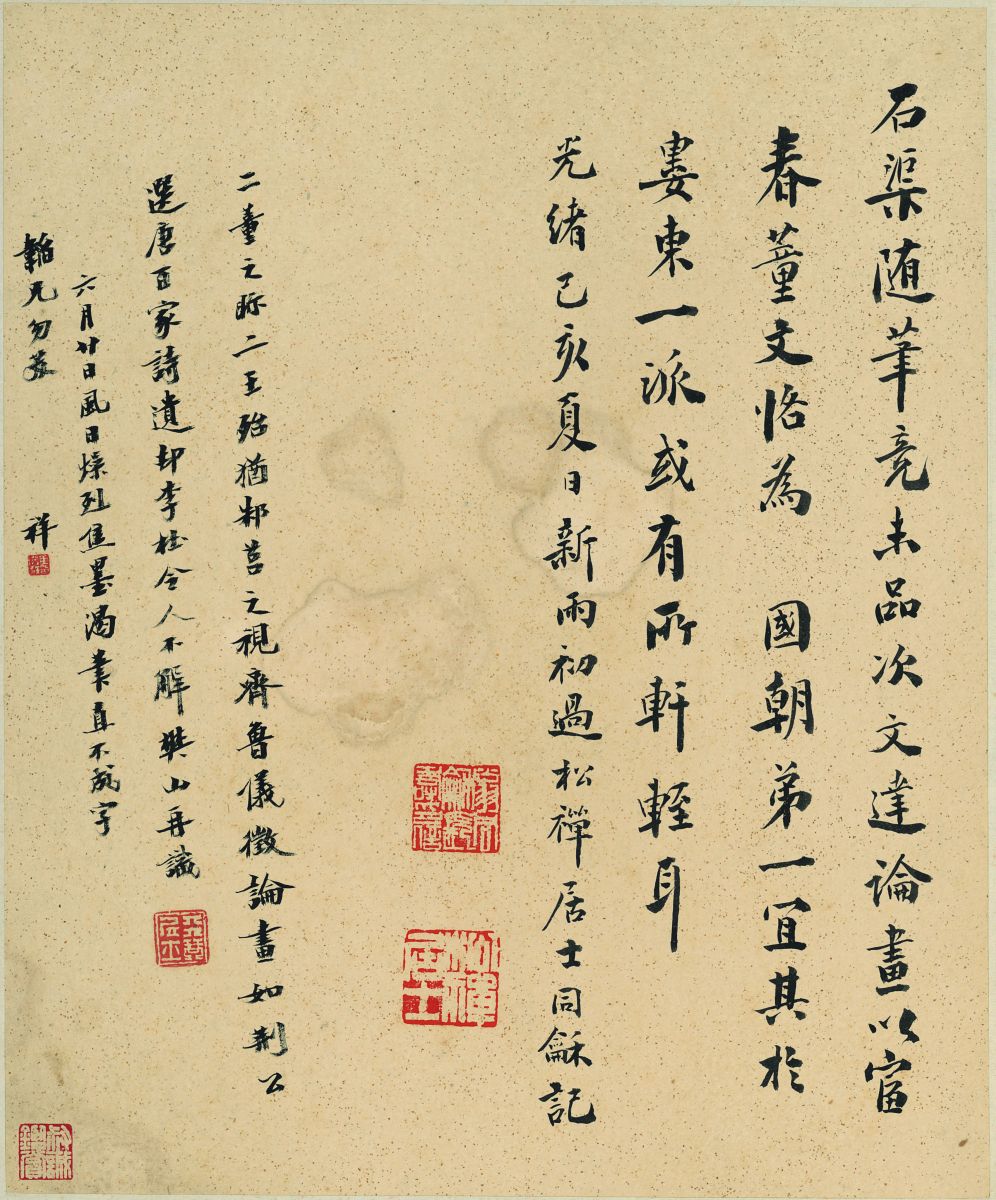 石渠随筆竟未品次文達論畫以富
春董文恪為國朝第一宜其於
婁東一派或有所軒輊耳
光緒己亥夏日新雨初過松禪居士同龢記
二董之眎二王殆猶邾莒之視齊魯儀徵論畫如荆公
選唐百家詩遺却李杜令人不解樊山再識
六月廿日風日燥烈焦墨渴業直不成字
韜兄勿笑
祥
松禪居士